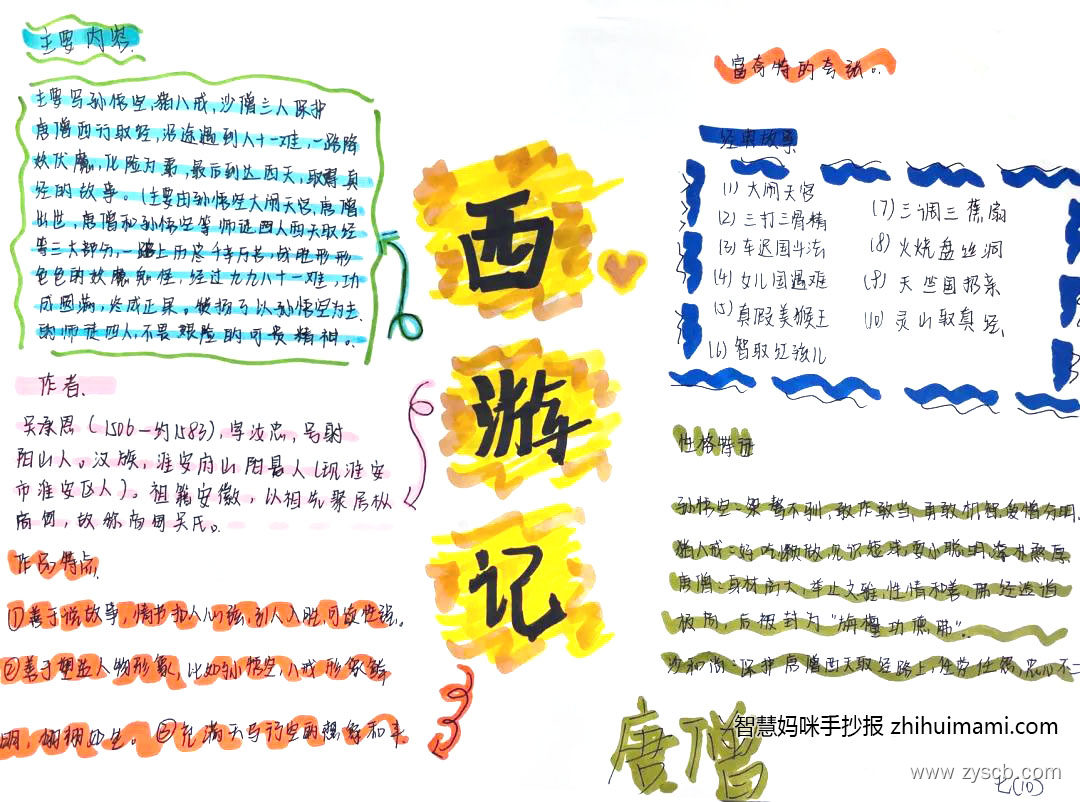 主要内容.
主要写孙悟空,猪八戒,沙僧三人保护
唐僧西行取经,沿途遇到八十一难,一路降
妖伏魔,化险为夷,最后到达西天,取得真
经的故事。(主要由孙悟空大闹天宫,唐僧
出世,唐僧和孙悟空等师徒四人西天取经
等三大部分,一路上历尽千辛万苦,战胜形形
色色的妖魔鬼怪,经过九九八十一难,功
成圆满,终成正果。 了以孙悟空为主
的师徒四人,不畏艰险的可贵精神。
作者.
吴承恩(1506—约1583),字汝忠,号射
阳山人。汉族,淮安府山阳县人(现淮安
市淮安区人)。祖籍安徽,以祖先聚居枞
,故称 吴氏。
作品特点
①善于说故事,情节扣人心弦,引人入胜,可读性强。
②善于塑造人物形象,比如孙悟空,八戒形象鲜
明,栩栩如生。③充满天马行空的想象和丰
西
游
记
富奇特的夸张。
经典故事
(1)大闹天宫
(2)三打三骨精
(3)车迟国斗法
(4)女儿国遇难
(5)真假美猴王
(6)智取红孩儿
(7)三调三蕉扇
(8)火烧盘丝洞
(9)天竺国招亲
(10)灵山取真经
性格特征
孙悟空:桀骜不驯,敢作敢当,勇敢机 爱憎分明.
猪八戒:好吃懒做, 短 ,耍小聪明, 憨厚
唐僧:身材高大,举止文雅,性情和善,佛经造诣
极高,后被封为"旃檀功德佛".
沙和尚:保护唐僧西天取经路上,任劳任怨,忠心不二
唐僧
智慧妈咪手抄报 zhihuimami.com
www.zyscb.com
七(10)